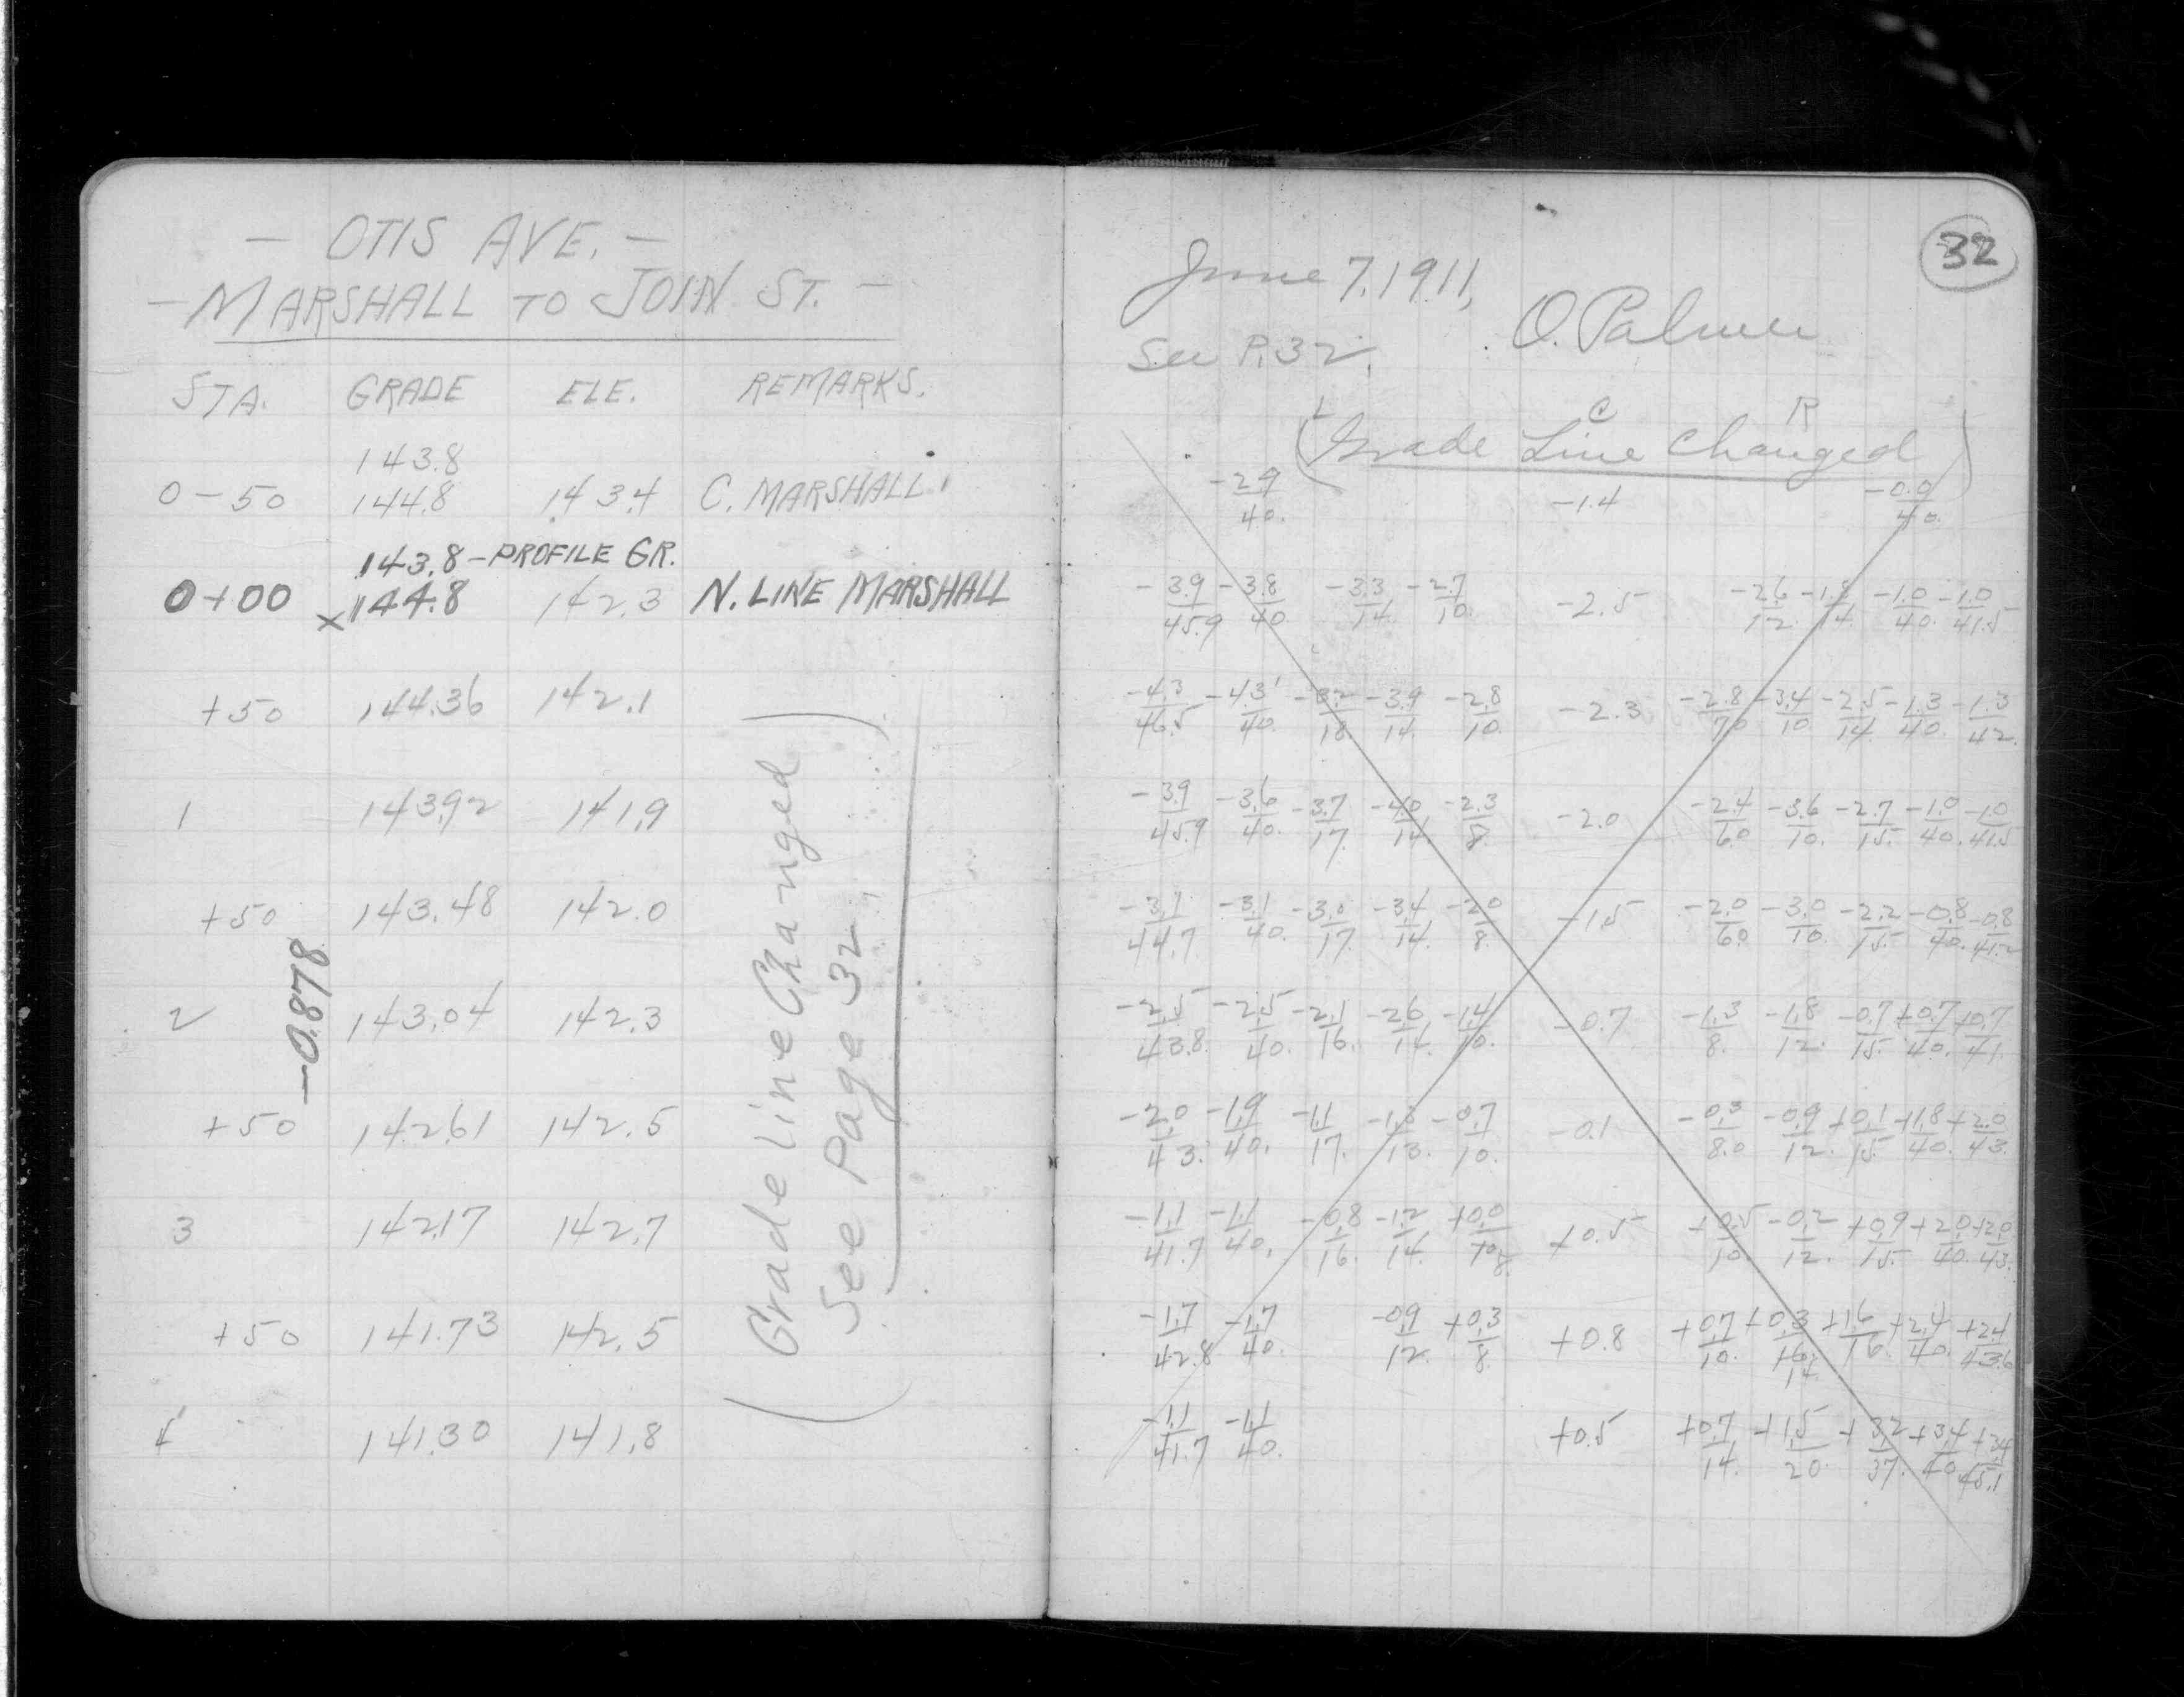 - OTIS AVE. -
- MARSHALL TO JOHN ST. -
STA. GRADE ELE. REMARKS.
143.8
0-50 144.8 143.4 C. MARSHALL.
143.8-PROFILE GR.
0+00 x144.8 142.3 N. LINE MARSHALL
+50 144.36 142.1
1 143.92 141.9
+50 143.48 142.0
2 143.04 142.3
+50 142.61 142.5
3 142.17 142.7
+50 141.73 142.5
4 141.30 141.8
-0.878
(Grade Line Changed)
See Page 32,
32
June 7, 1911,
O. Palmer
See P. 32,
L C R
(Grade Line Changed)
-2.9/40. -1.4 -0.0/40.
-3.9/45.9 -3.8/40 -3.3/14. -2.7/10. -2.5 -2.6/12. -1.0/40. -1.0/41.5
-4.3/46.5 -4.3/40. -3.2/18. -3.9/14. -2.8/10. -2.3 -2.8/70 -3.4/10 -2.5/14. -1.3/40. -1.3/42.
-3.9/45.9 -3.6/40. -3.7/17. -4.0/14. -2.3/8. -2.0 -2.4/60 -3.6/10. -2.7/15. -1.0/40. -1.0/41.5
-3.1/40. -3.0/17. -3.4/14. -2.0/8. -1.5 -2.0/60 -3.0/10. -2.2/15. -0.8/40. -0.8/41.2
-2.5/43.8 -2.5/40. -2.1/16. -2.6/14. -1.4/10. -0.7 -1.3/8. -1.8/12. -0.7/15. +0.7/40. +0.7/41.
-2.0/43. -1.9/40. -1.1/17. -1.3/13. -0.7/10. -0.1 -0.3/8.0 -0.9/12. +0.1/15. +1.8/40. +2.0/43.
-1.1/41.7 -1.1/40. -0.8/16. -1.2/14. +0.0/10. 8. +0.5 +0.5/10. -0.2/12. +0.9/15. +2.0/40. +2.0/43.
-1.7/42.8 -1.7/40. -0.9/12. +0.3/8. +0.8 +0.7/10. +0.3/14. +1.6/16. +2.4/40. +2.4/43.6
-1.1/41.7 -1.1/40. +0.5 +0.7/14. +1.5/20. +3.2/37. +3.4/40. +3.4/45.1